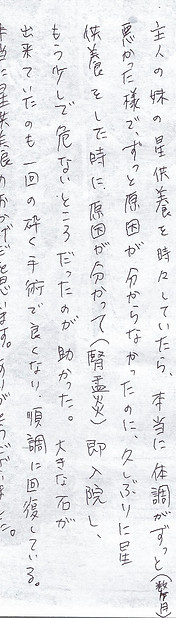 ・主人の妹の星供養を時々していたら、本当に体調がずっと(数ヶ月)
悪かった様で、ずっと原因が分からなかったのに、久しぶりに星
供養をした時に、原因が分かって(腎盂炎)即入院し、
もう少しで危ないところだったのが助かった。大きな石が
出来ていたのも一回の砕く手術で良くなり、順調に回復している。
本当に星供養のおかげだと思います。ありがとうございました。